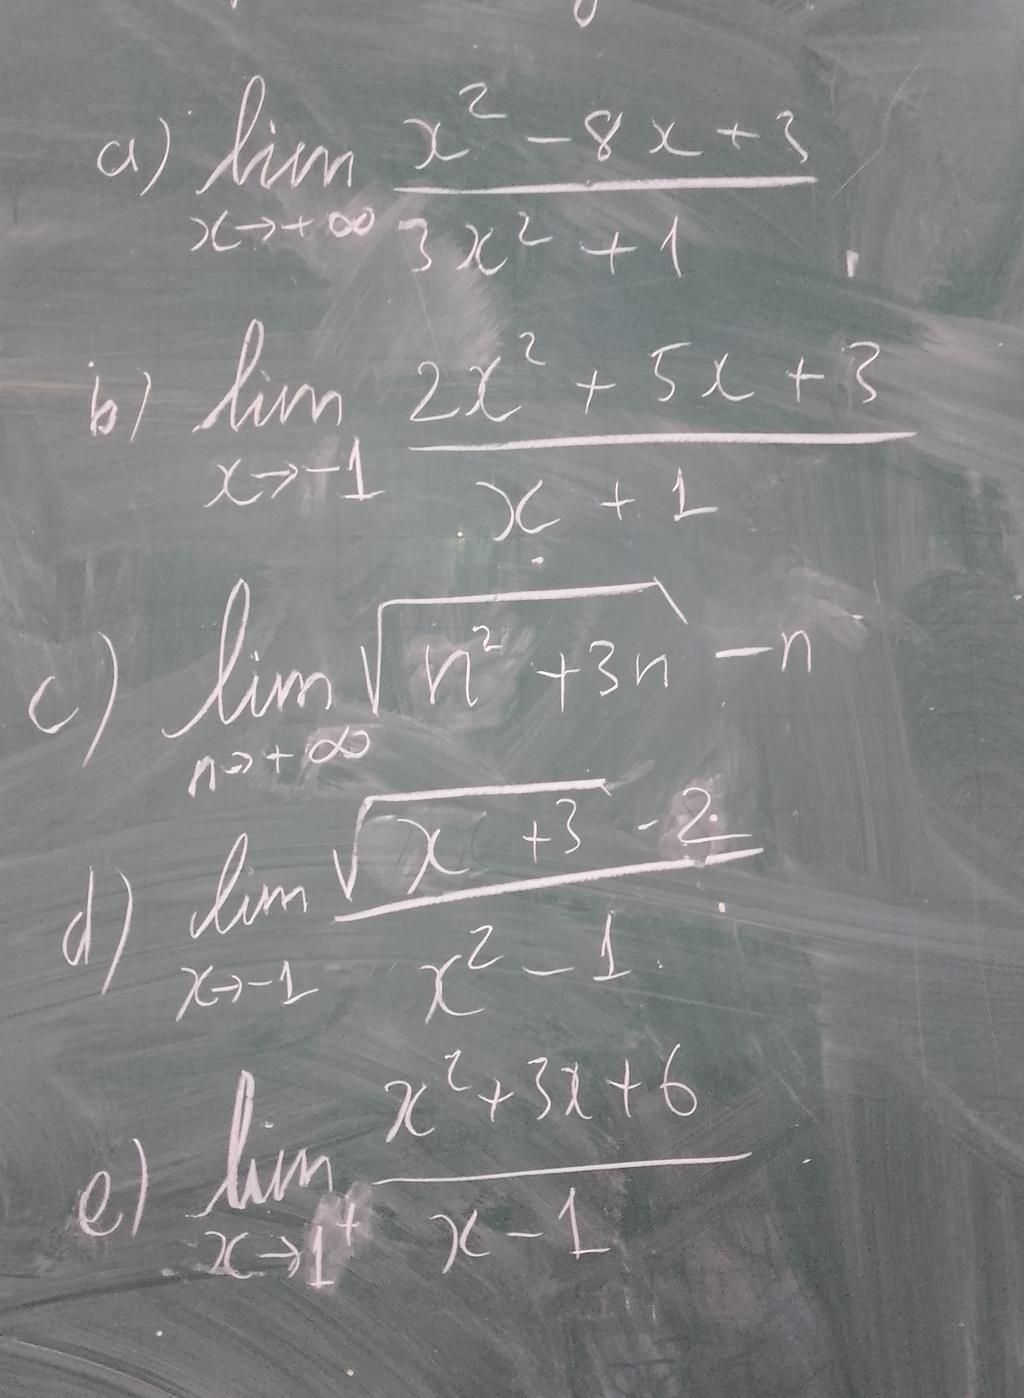 a) lim x→+∞ (x² - 8x + 3) / (3x² + 1)
b) lim x→-1 (2x² + 5x + 3) / (x + 1)
c) lim n→+∞ √(n² + 3n) - n
d) lim x→-1 (√(x + 3) - 2) / (x² - 1)
e) lim x→1⁺ (x² + 3x + 6) / (x - 1)